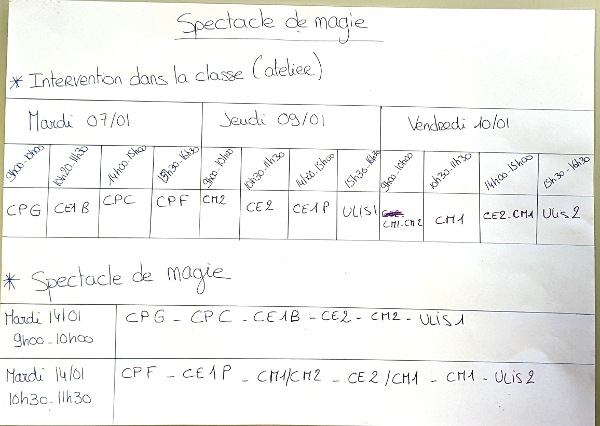 Spectacle de magie
* Intervention dans la classe (atelier)
Mardi 07/01 Jeudi 09/01 Vendredi 10/01
9h00-10h00 10h20-11h30 14h00-15h00 15h30-16h30 9h00-10h00 10h30-11h30 14h00-15h00 15h30-16h30 9h00-10h00 10h30-11h30 14h00-15h00 15h30-16h30
CPG CE1B CPC CPF CM2 CE2 CE1P ULIS1 CM1-CM2 CM1 CE2-CM1 ULIS 2
* Spectacle de magie
Mardi 14/01 CPG - CPC - CE1B - CE2 - CM2 - ULIS 1
9h00-10h00
Mardi 14/01 CPF - CE1P - CM1/CM2 - CE2/CM1 - CM1 - ULIS 2
10h30-11h30